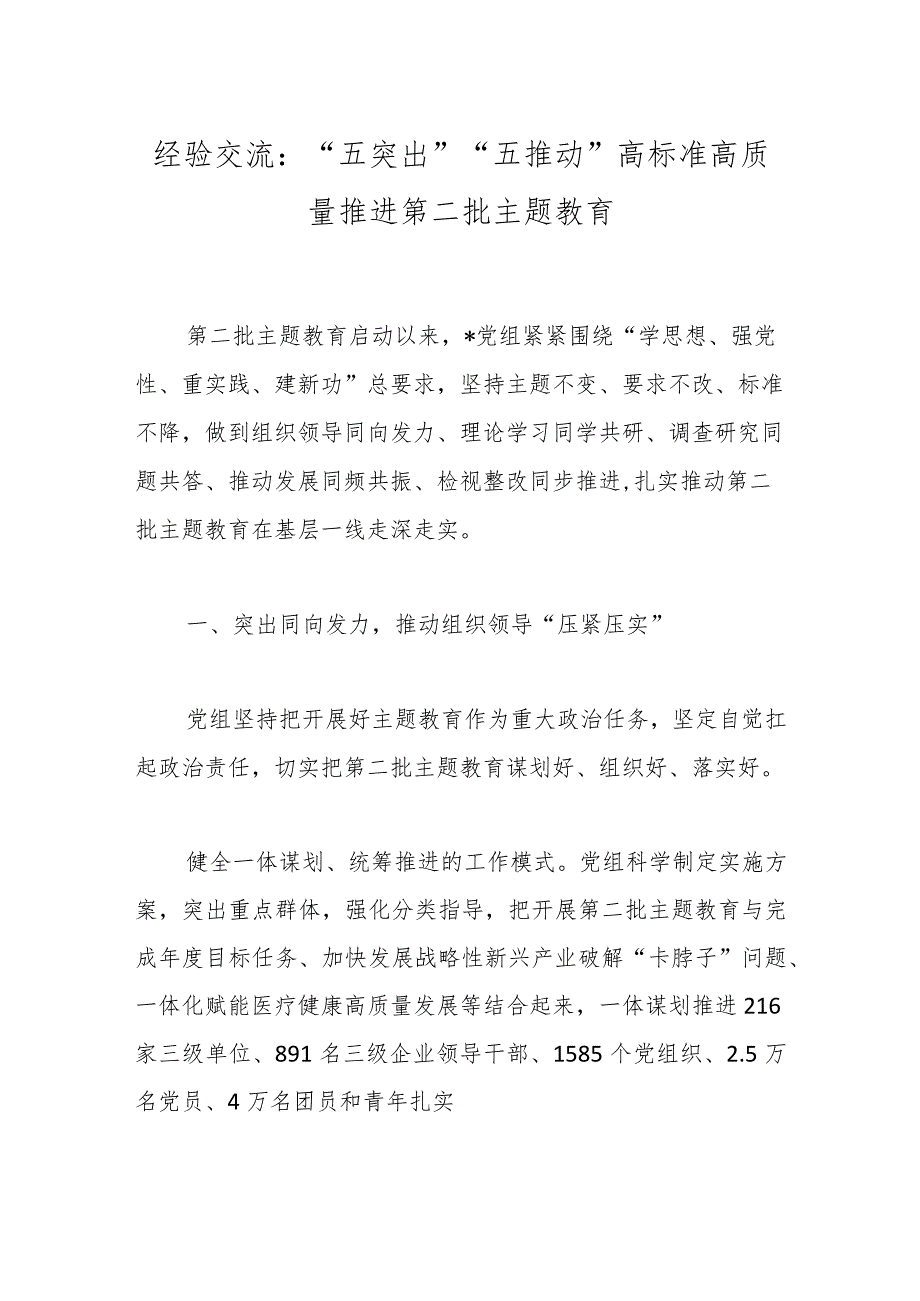 经验交流：“五突出”“五推动”高标准高质
量推进第二批主题教育
第二批主题教育启动以来，*党组紧紧围绕“学思想、强党
性、重实践、建新功”总要求，坚持主题不变、要求不改、标准
不降，做到组织领导同向发力、理论学习同学共研、调查研究同
题共答、推动发展同频共振、检视整改同步推进,扎实推动第二
批主题教育在基层一线走深走实。
一、突出同向发力，推动组织领导“压紧压实”
党组坚持把开展好主题教育作为重大政治任务，坚定自觉扛
起政治责任，切实把第二批主题教育谋划好、组织好、落实好。
健全一体谋划、统筹推进的工作模式。党组科学制定实施方
案，突出重点群体，强化分类指导，把开展第二批主题教育与完
成年度目标任务、加快发展战略性新兴产业破解“卡脖子”问题、
一体化赋能医疗健康高质量发展等结合起来，一体谋划推进 216
家三级单位、891 名三级企业领导干部、1585 个党组织、2.5 万
名党员、4 万名团员和青年扎实